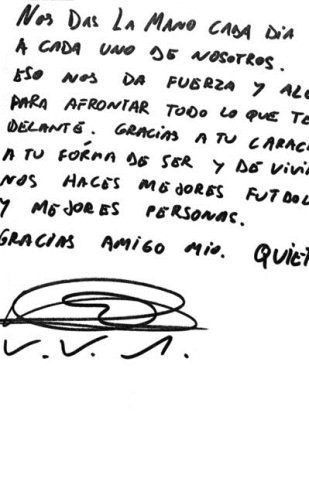 NOS DAS LA MANO CADA DIA
A CADA UNO DE NOSOTROS.
ESO NOS DA FUERZA Y ALE
PARA AFRONTAR TODO LO QUE TE
DELANTE. GRACIAS A TU CARAC
A TU FÓRMA DE SER Y DE VIVI
NOS HACES MEJORES FUTBOL
Y MEJORES PERSONAS.
GRACIAS AMIGO MIO. QUIET
V. V. 1.